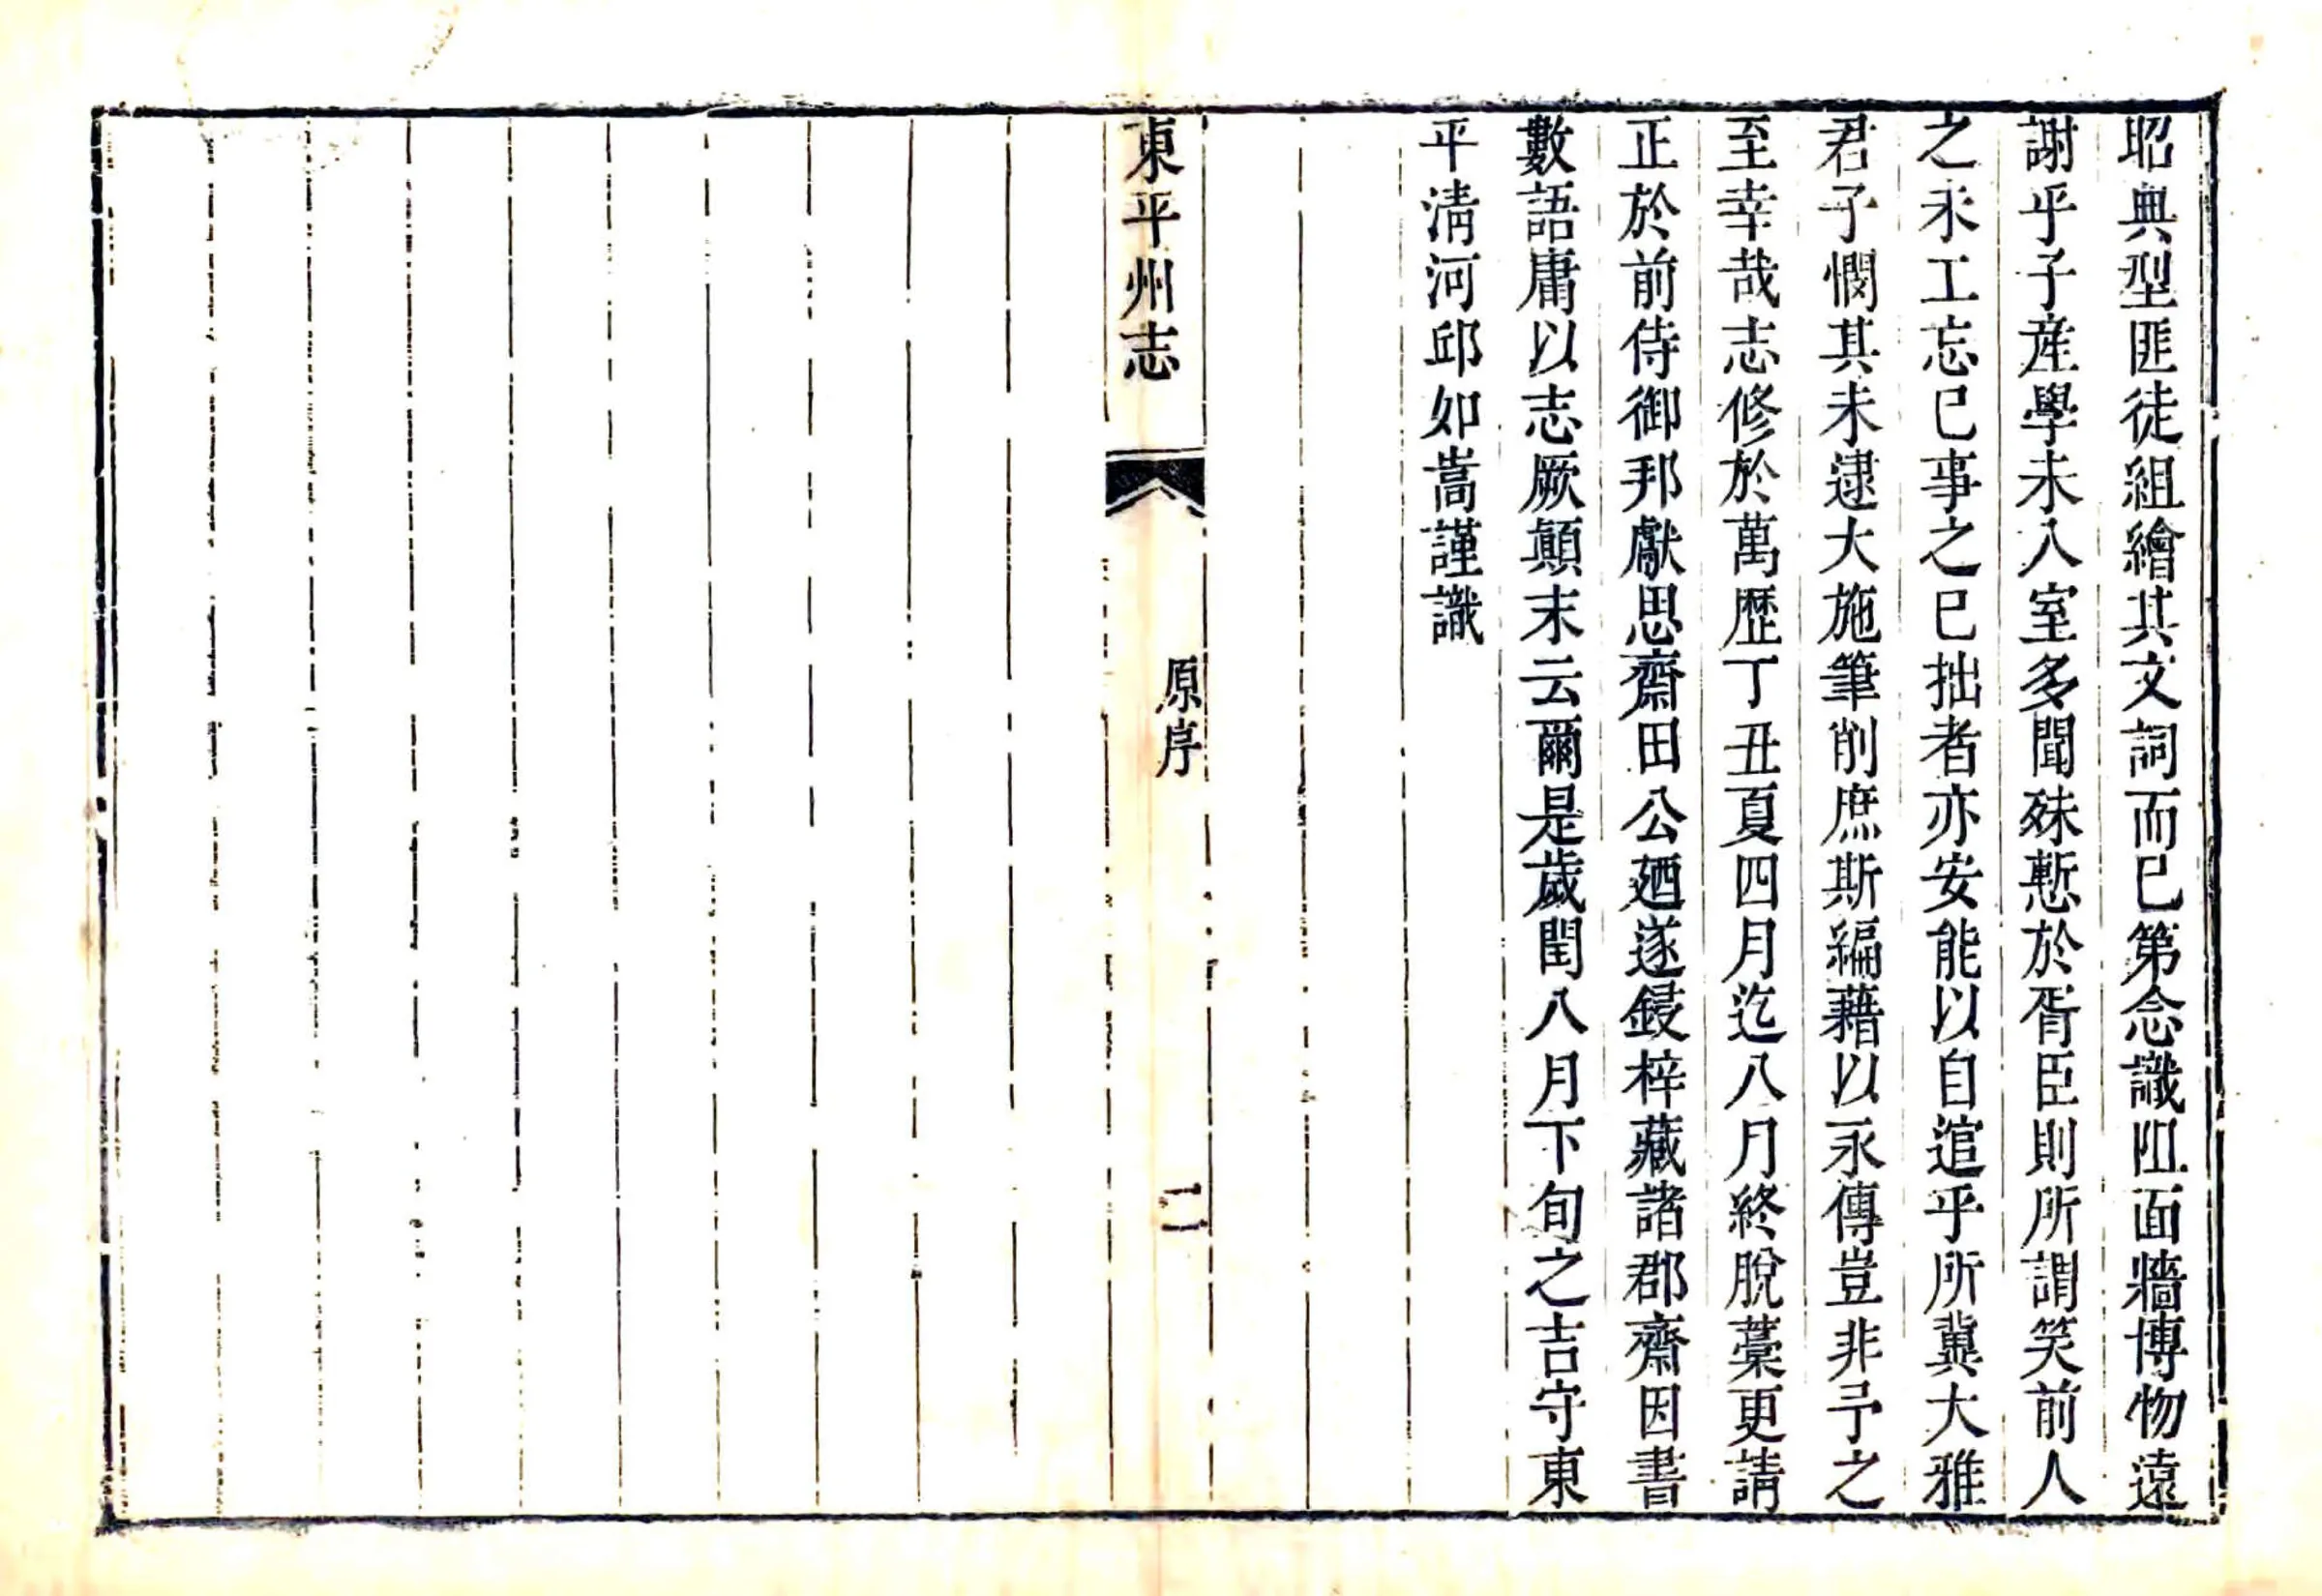 昭典型匪徒組繪其文詞而已第念識阻面牆博物遠
謝乎子産學未入室多聞殊慙於胥臣則所謂笑前人
之未工忘已事之已拙者亦安能以自逭乎所冀大雅
君子憫其未逮大施筆削庶斯編藉以永傳豈非予之
至幸哉志修於萬歷丁丑夏四月迄八月終脫藁更請
正於前侍御邦獻思齋田公廼遂鋟梓藏諸郡齋因書
數語庸以志厥顛末云爾是歲閏八月下旬之吉守東
平淸河邱如嵩謹識
東平州志
原序
二